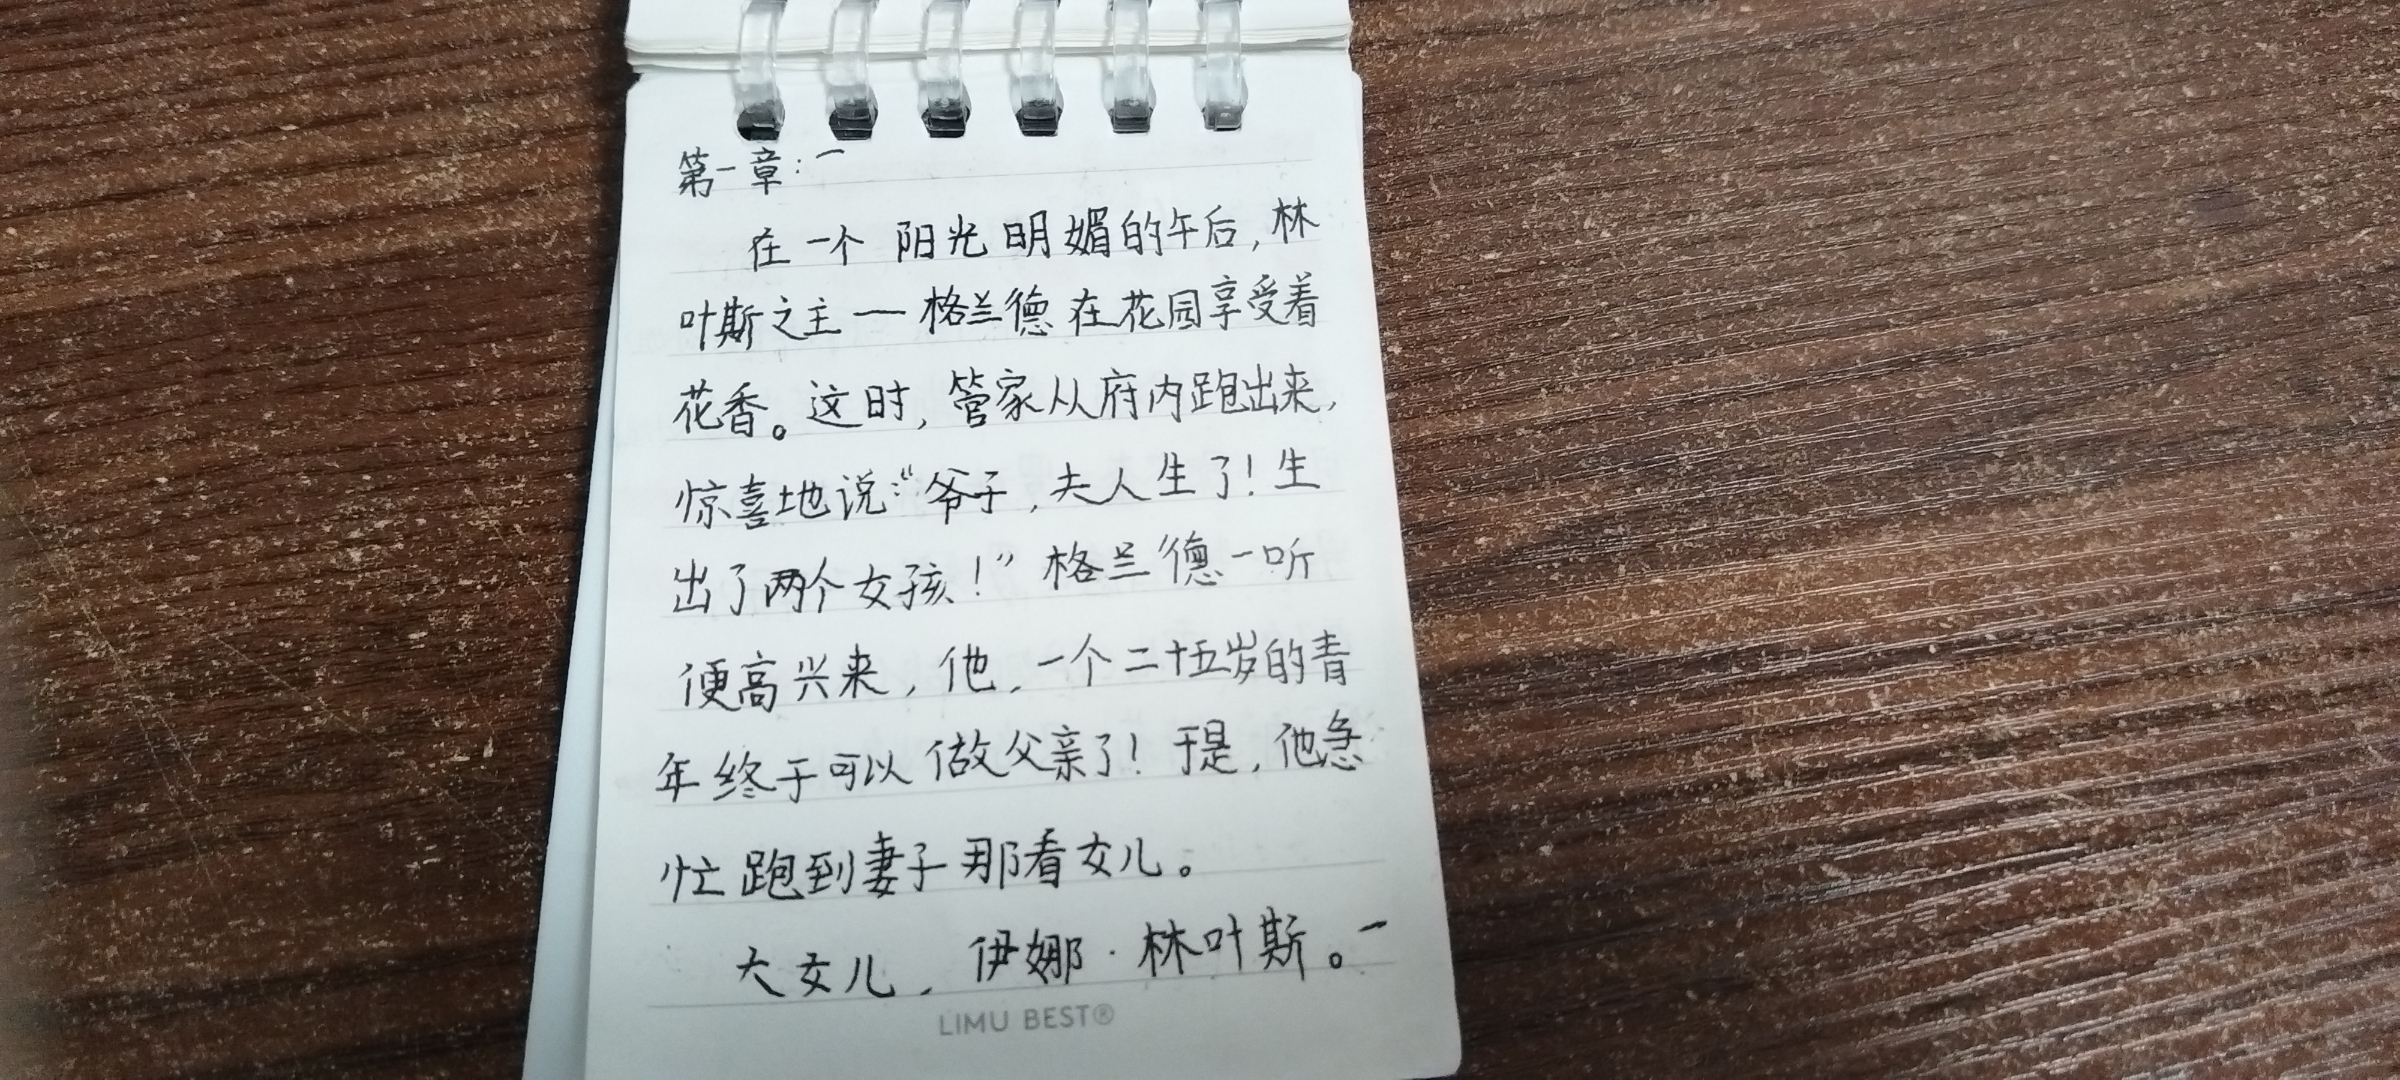 第一章：一
在一个阳光明媚的午后，林
叶斯之主一格兰德在花园享受着
花香。这时，管家从府内跑出来，
惊喜地说：“爷子，夫人生了！生
出了两个女孩！”格兰德一听
便高兴来，他，一个二十五岁的青
年终于可以做父亲了！于是，他急
忙跑到妻子那看女儿。
大女儿，伊娜·林叶斯。一
LIMU BEST®